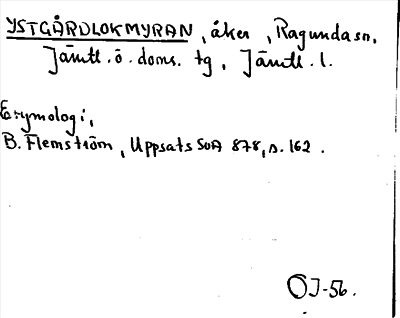 YSTGÅRDLOKMYRAN, åker, Ragundasn,
Jämtl. ö. doms. tg, Jämtl. l.
Etymologi,
B. Flemström, Uppsats SOA 878, s. 162.
OJ-56.